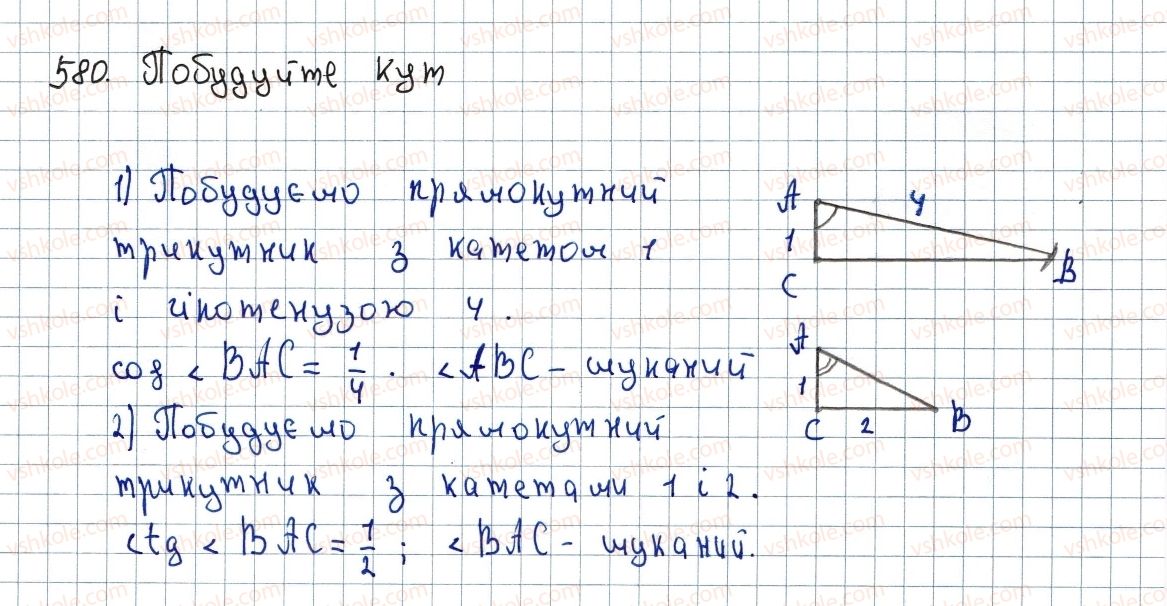 580. Побудуйте кут
1) Побудуємо прямокутний
трикутник з катетом 1
і гіпотенузою 4.
cos < BAC = 1/4. < ABC – шуканий
2) Побудуємо прямокутний
трикутник з катетами 1 і 2.
ctg < BAC = 1/2; < BAC – шуканий.
A
4
1
C
B
A
1
C
2
B